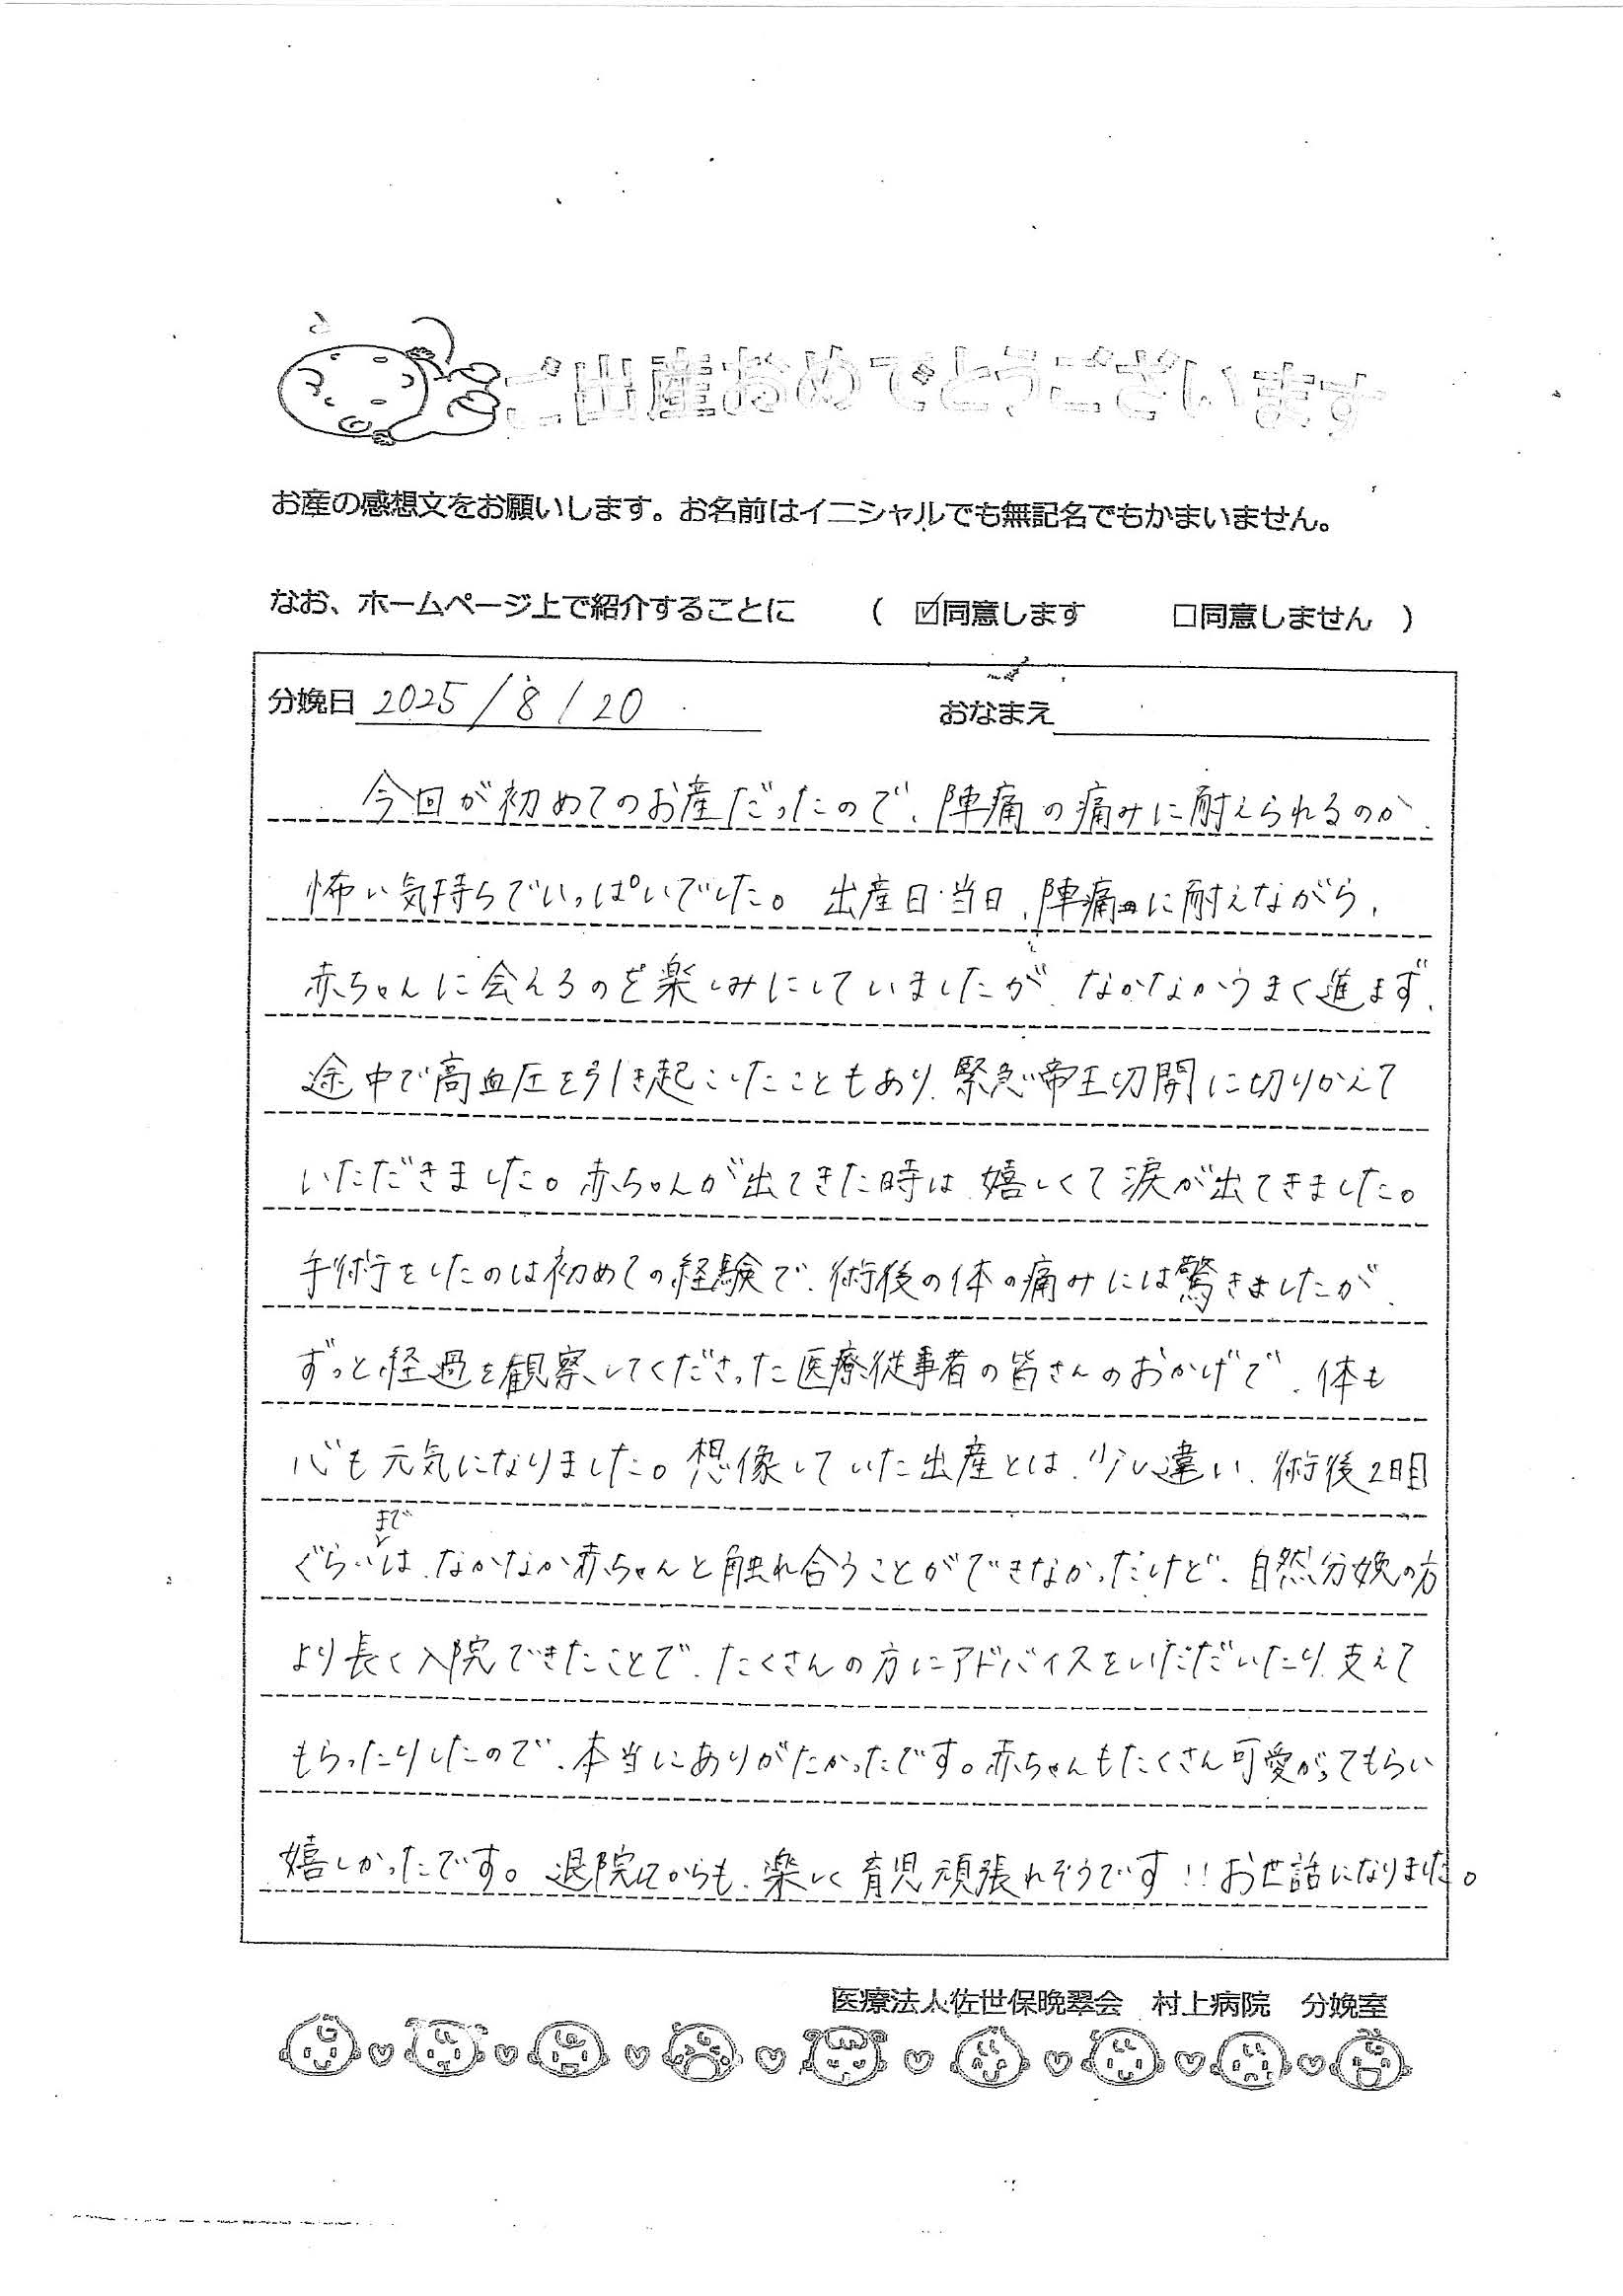 ご出産おめでとうございます
お産の感想文をお願いします。お名前はイニシャルでも無記名でもかまいません。
なお、ホームページ上で紹介することに （ ☑同意します □同意しません ）
分娩日 2025/8/20 おなまえ
今回が初めてのお産だったので、陣痛の痛みに耐えられるのか、
怖い気持ちでいっぱいでした。出産日当日、陣痛に耐えながら、
赤ちゃんに会えるのを楽しみにしていましたが、なかなかうまく進まず、
途中で高血圧を引き起こしたこともあり、緊急帝王切開に切りかえて
いただきました。赤ちゃんが出てきた時は、嬉しくて涙が出てきました。
手術をしたのは初めての経験で、術後の体の痛みには驚きましたが、
ずっと経過を観察してくださった医療従事者の皆さんのおかげで、体も
心も元気になりました。想像していた出産とは、少し違い、術後2日目
ぐらいまでは、なかなか赤ちゃんと触れ合うことができなかったけど、自然分娩の方
より長く入院できたことで、たくさんの方にアドバイスをいただいたり、支えて
もらったりしたので、本当にありがたかったです。赤ちゃんもたくさん可愛がってもらい
嬉しかったです。退院してからも、楽しく育児頑張れそうです!!お世話になりました。
医療法人佐世保晩翠会 村上病院 分娩室